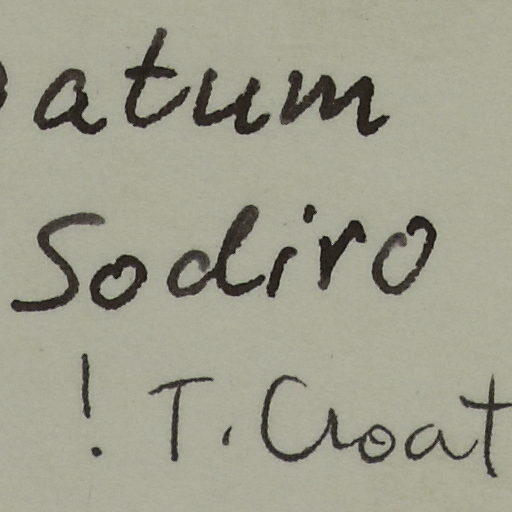 atum
Sodiro
! T. Croat